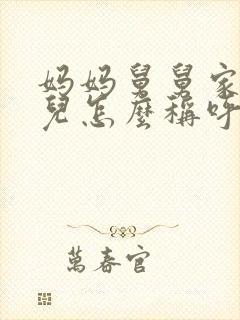 妈妈舅舅家
兒怎麼稱呼
萬春官